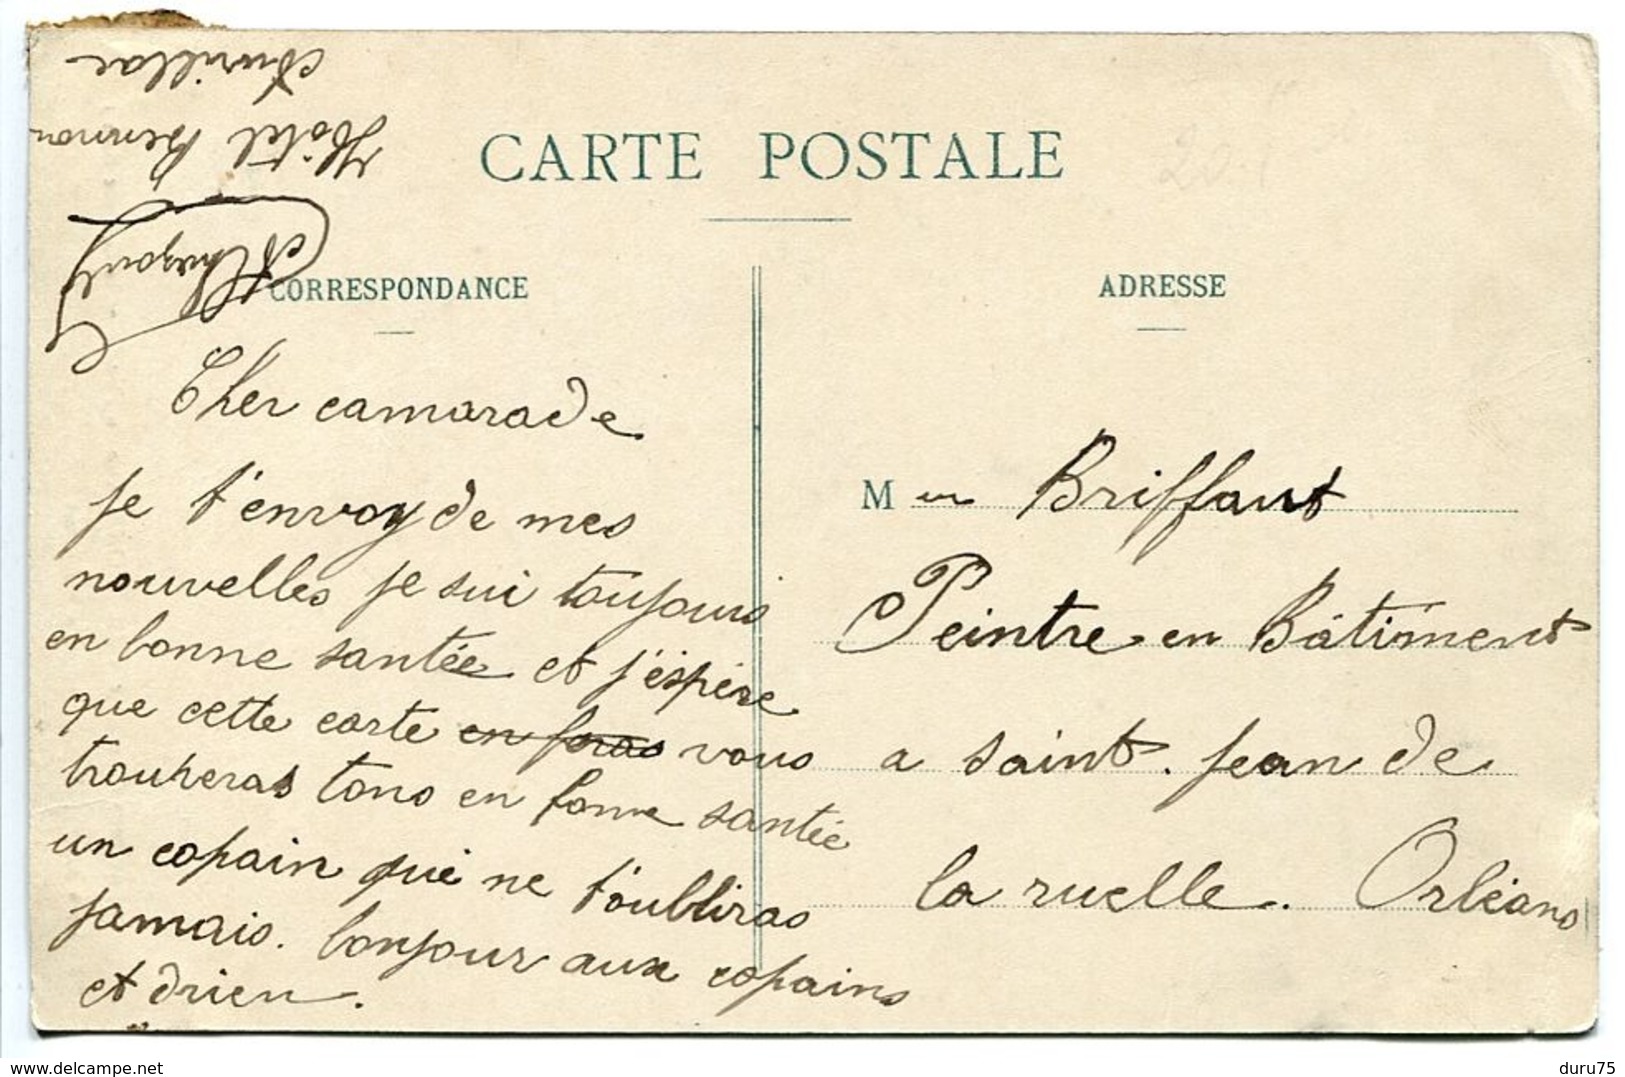 CARTE POSTALE
CORRESPONDANCE
Cher camarade
je t'envoy de mes
nouvelles je sui toujours
en bonne santée et j'éspère
que cette carte en foras vous
trouveras tous en bonne santée
un copain qui ne t'oubliras
jamais. bonjour aux copains
et drien.
Hôtel
Aurillac
ADRESSE
M eur Briffaut
Peintre en Bâtiment
a saint. jean de
la ruelle. Orléans
www.delcampe.net
duru75